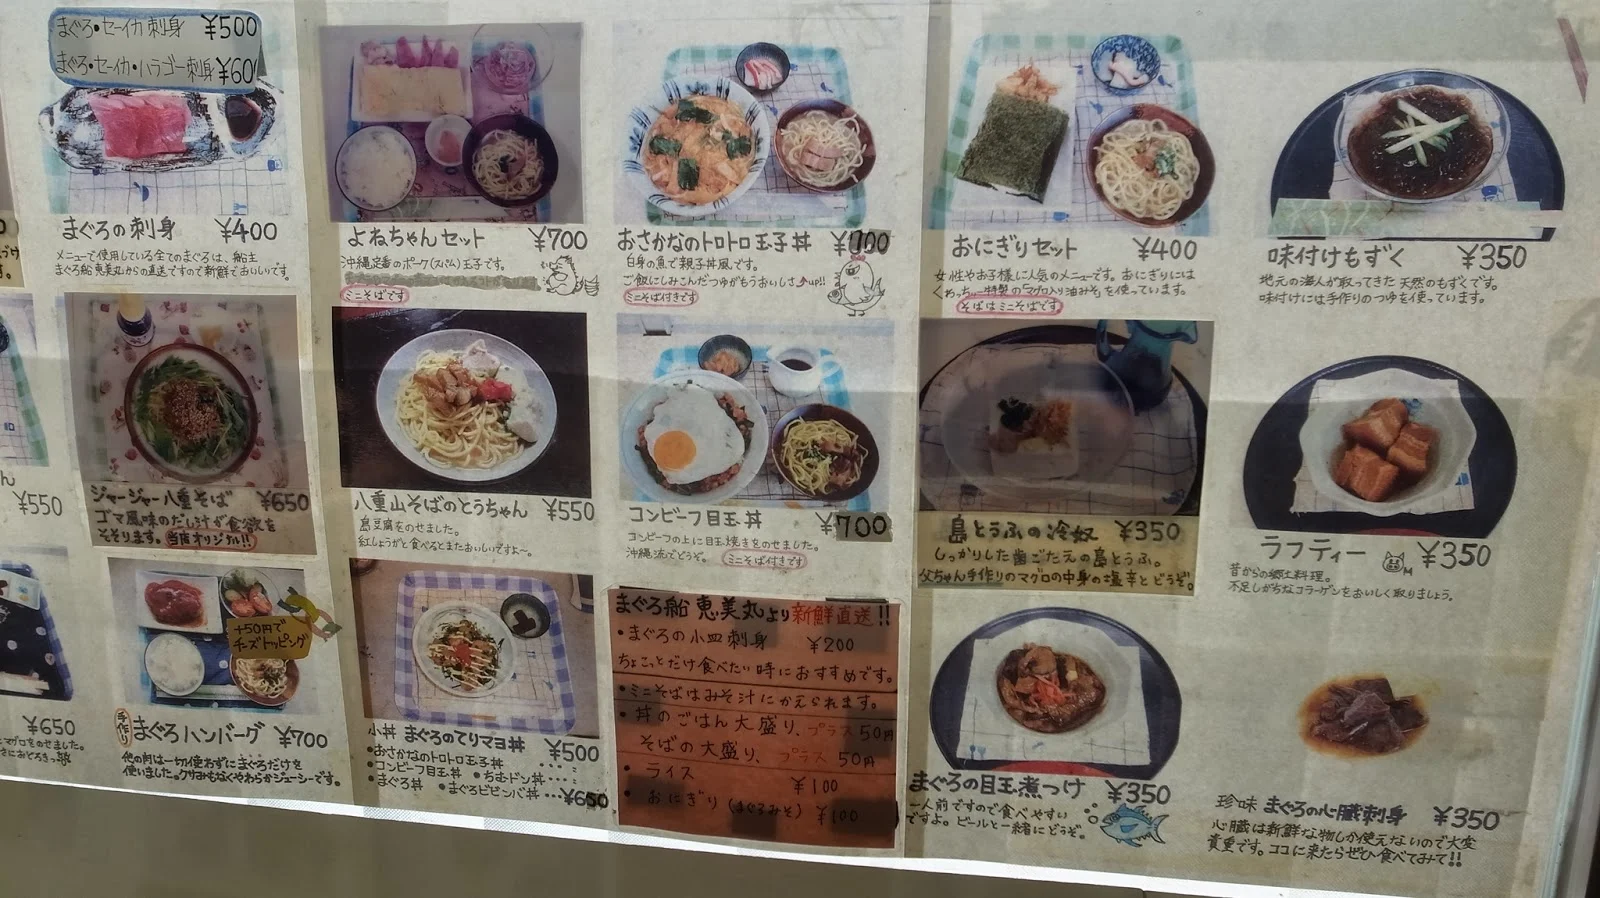 まぐろ・セーイカ刺身 ¥500
まぐろ・セーイカ・ハラゴー刺身 ¥60
まぐろの刺身 ¥400
メニューで使用している全てのまぐろは、船主
まぐろ船恵美丸からの直送ですので新鮮でおいしいです。
よねちゃんセット ¥700
沖縄定番のポーク(スパム)玉子です。
ミニそばです
おさかなのトロトロ玉子丼 ¥700
白身の魚で親子丼風です。
ご飯にしみこんだつゆがもうおいしさup!!
ミニそば付きです
おにぎりセット ¥400
女性やお子様に人気のメニューです。おにぎりには
くわっちー特製の「マグロ入り油みそ」を使っています。
そばはミニそばです。
味付けもずく ¥350
地元の海人が取ってきた天然のもずくです。
味付けには手作りのつゆを使っています。
ん
¥550
ジャージャー八重そば ¥650
ゴマ風味のだし汁が食欲を
そそります。当店オリジナル!!
八重山そばのとうちゃん ¥550
島豆腐をのせました。
紅しょうがと食べるとまたおいしいですよ〜。
コンビーフ目玉丼 ¥700
コンビーフの上に目玉焼きをのせました。
沖縄流でどうぞ。 ミニそば付きです
島とうふの冷奴 ¥350
しっかりした歯ごたえの島とうふ。
父ちゃん手作りのマグロの中身の塩辛とどうぞ。
ラフティー ¥350
昔からの郷土料理。
不足しがちなコラーゲンをおいしく取りましょう。
¥650
マグロをのせました。
+50円で
チーズトッピング
手作り まぐろハンバーグ ¥700
他の肉は一切使わずにまぐろだけを
使いました。クサみもなくやわらかジューシーです。
小丼 まぐろのてりマヨ丼 ¥500
・おさかなのトロトロ玉子丼
・コンビーフ目玉丼 ・ちむドン丼
・まぐろ丼 ・まぐろビビンバ丼 … ¥650
まぐろ船 恵美丸より新鮮直送!!
・まぐろの小皿刺身 ¥200
ちょこっとだけ食べたい時におすすめです。
・ミニそばはみそ汁にかえられます。
・丼のごはん大盛り、プラス50円
そばの大盛り、プラス50円
・ライス ¥100
・おにぎり(まぐろみそ) ¥100
まぐろの目玉煮つけ ¥350
一人前ですので食べやすい
ですよ。ビールと一緒にどうぞ。
珍味 まぐろの心臓刺身 ¥350
心臓は新鮮な物しか使えないので大変
貴重です。ココに来たらぜひ食べてみて!!